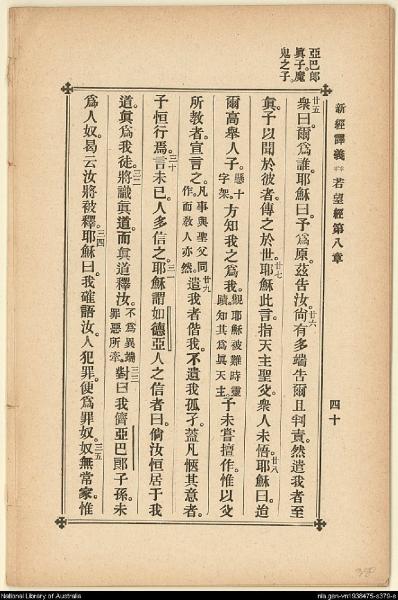 亞巴郎
眞子。魔
鬼之子。
新經譯義
若望經第八章
四十
廿五衆曰爾爲誰。耶穌曰予爲原。茲告汝。廿六尙有多端告爾且判責。然遣我者至
眞。予以聞於彼者。傳之於世。廿七耶穌此言。指天主聖父。衆人未悟。廿八耶穌曰。迨
爾高舉人子。懸十字架。方知我之爲我。覩耶穌被難時靈蹟知其爲眞天主。予未嘗擅作。惟以父
所教者。宣言之。凡事與聖父同作而教人亦然。廿九遣我者偕我。不遺我孤孑。蓋凡愜其意者。
予恒行焉。三十言未已。人多信之。三一耶穌謂如德亞人之信者曰。倘汝恒居于我
道。眞爲我徒。三二將識眞道。而眞道釋汝。不爲異端罪惡所牽。三三對曰。我儕亞巴郎子孫。未
爲人奴。曷云汝將被釋。三四耶穌曰。我確語汝。人犯罪。便爲罪奴。三五奴無常家。惟
National Library of Australia
nla.gen-vn1938475-s379-e